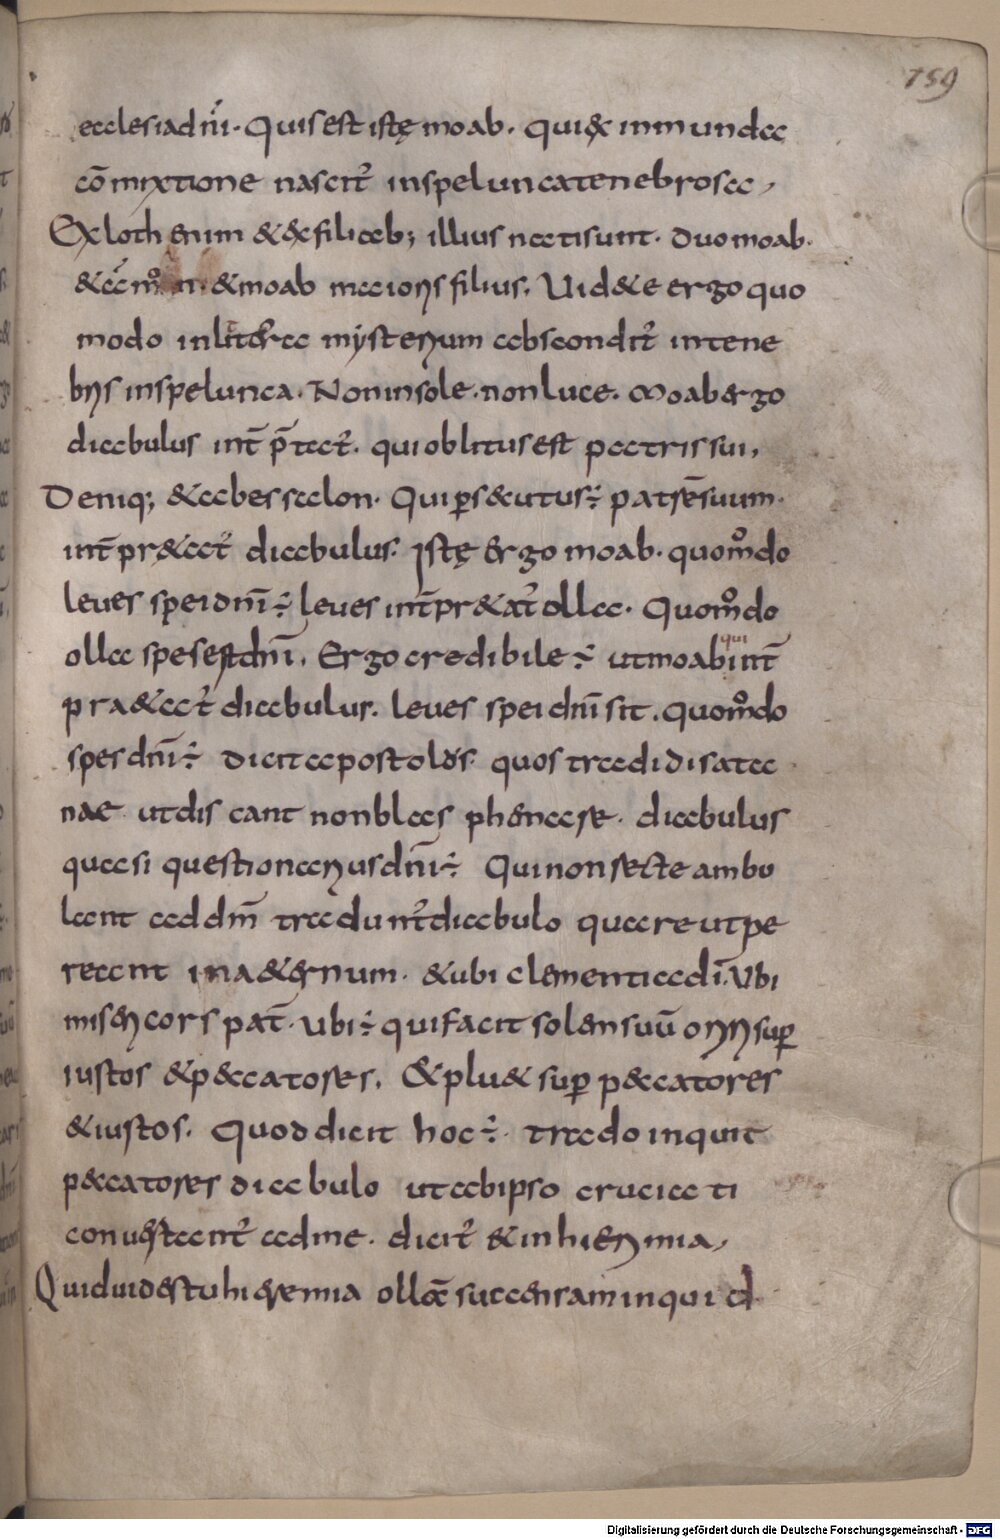 159
ecclesia dñi. Quis est istę moab. qui & inmunda
cōmixtione nascit᷑ inspelunca tenebrosa,
Ex loth enim & ex filiab; illius nati sunt. duo moab.
& ammon. & moab maioris filius. Uid&e ergo quo
modo in littera mysterium abscondit᷑ intene
bris inspelunca. Non insole. non luce. Moab ergo
diabulus int̄ p̄tat᷑. qui oblitus est patris sui,
Deniq; & abessalon. Qui ꝑs&utus ÷ patrē suum.
int̄pr&at᷑ diabulus. Istę ergo moab. quom̊do
leues spei dñi ÷ leues int̄pr&at᷑ olla. Quom̊do
olla spes est dñi. Ergo credibile ÷ ut moab qui int̄
pra&at᷑ diabulus. leues spei dñi sit. quom̊do
spes dñi ÷ dicit apostolus. quos tradidi sata
nae ut discant non blasphemare. diabulus
quasi questionarius dñi ÷ Qui non recte ambu
lant ad dñm tradunt᷑ diabulo quare ut pe
reant in a&ernum. & ubi clementia dī. Ubi
misericors pat̄. Ubi ÷ qui facit solem suū oriri suꝑ
iustos & p&catores. & plu& suꝑ p&catores
& iustos. Quod dicit hoc ÷. trado inquit
p&catores diabulo ut ab ipso cruciati
conuertant᷑ ad me. dicit᷑ & in hieremia,
Quid uides tu hieremia ollā succensam inquid
Digitalisierung gefördert durch die Deutsche Forschungsgemeinschaft - DFG